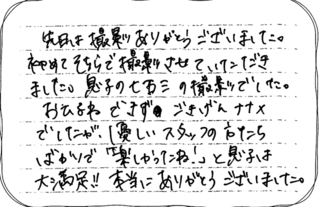 先日は撮影ありがとうございました。
初めてそちらで撮影させていただき
ました。息子の七五三の撮影でした。
おひるねできず ごきげんナナメ
でしたが、優しいスタッフの方たち
ばかりで「楽しかったね!」と息子は
大満足!! 本当にありがとうございました。